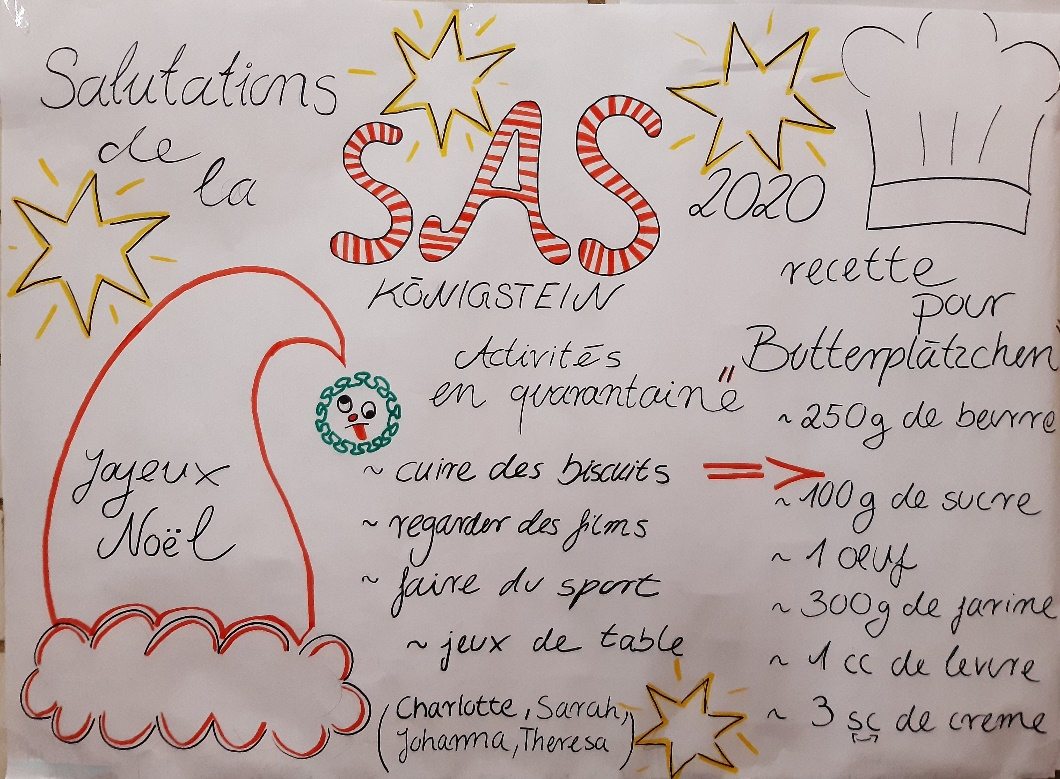 Salutations
de
la
SAS
2020
KÖNIGSTEIN
Joyeux
Noël
Activités
en quarantaine"
~ cuire des biscuits =>
~ regarder des films
~ faire du sport
~ jeux de table
(Charlotte, Sarah,
Johanna, Theresa)
recette
pour
Butterplätzchen
~ 250g de beurre
~ 100g de sucre
~ 1 œuf
~ 300g de farine
~ 1 cc de levure
~ 3 sc de creme